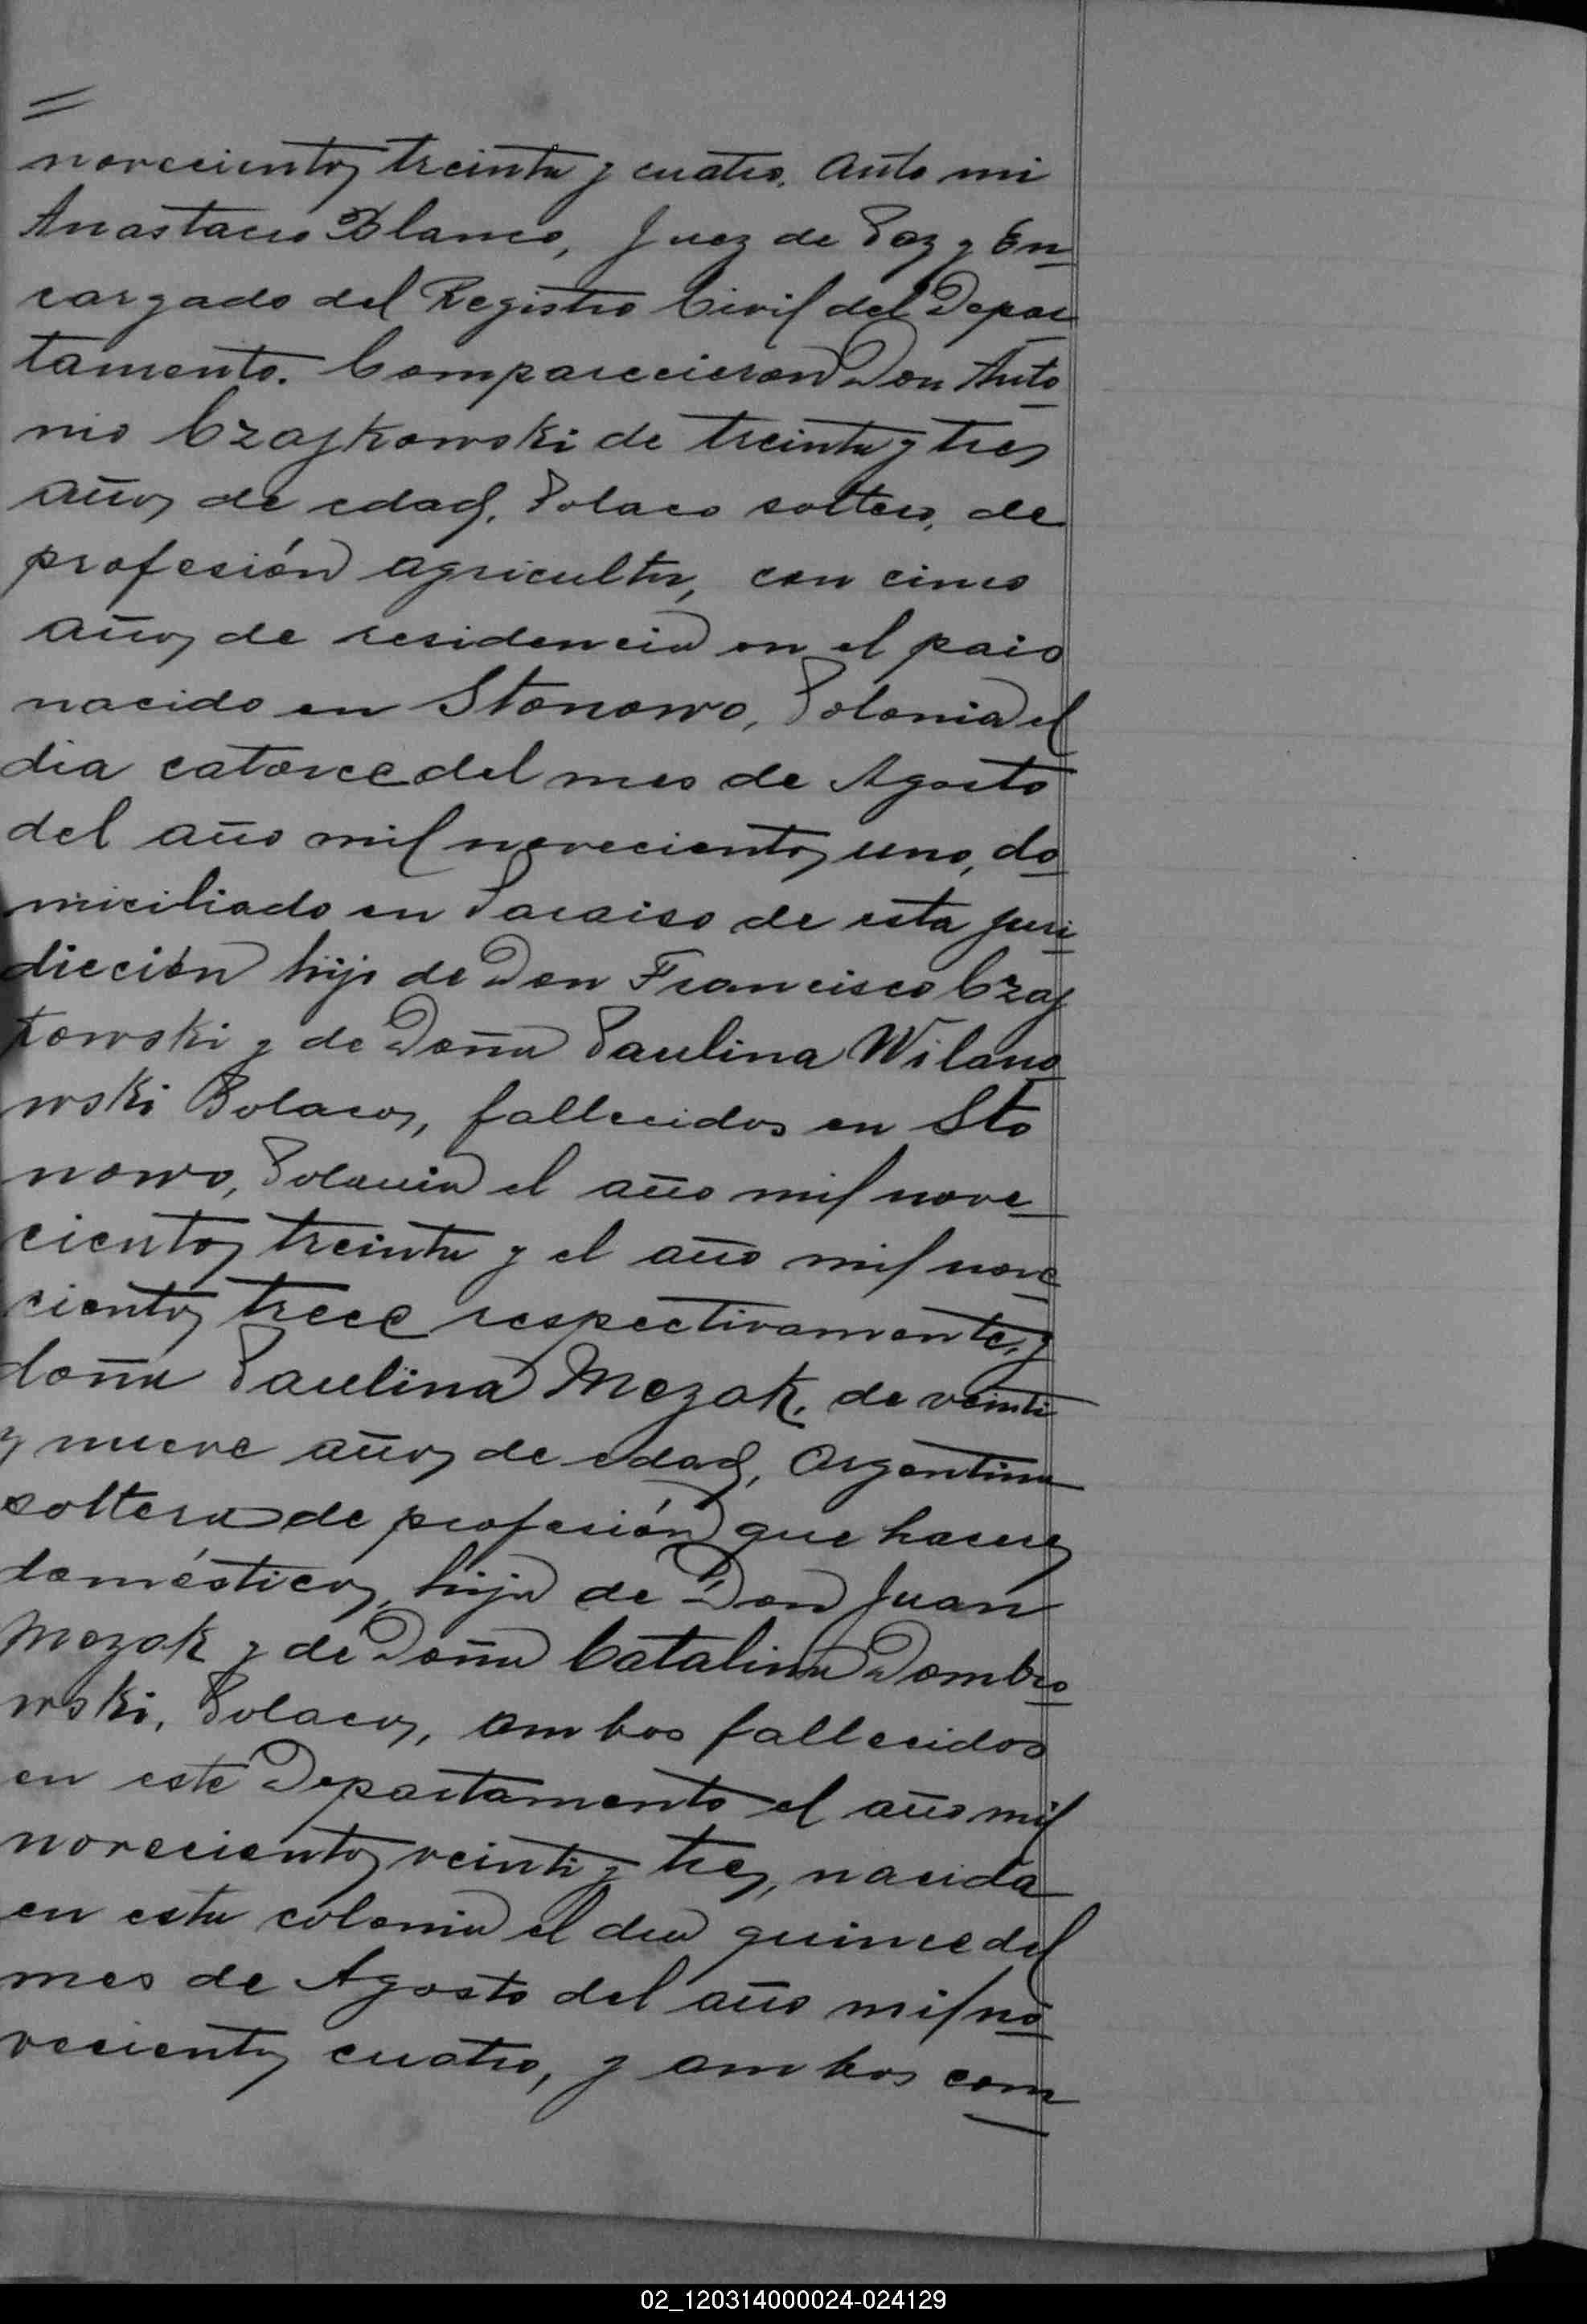 =
novecientos treinta y cuatro. Ante mi
Anastacio Blanco, Juez de Paz y En
cargado del Registro Civil del Depar
tamento. Comparecieron Don Anto
nio Czajkowski de treinta y tres
años de edad, Polaco soltero, de
profesión agricultor, con cinco
años de residencia en el pais
nacido en Stonowo, Polonia el
dia catorce del mes de Agosto
del año mil novecientos uno, do
miciliado en Paraiso de esta juri
dicción hijo de Don Francisco Czaj
kowski y de Doña Paulina Wilano
wski Polacos, fallecidos en Sto
nowo, Polonia el año mil nove
cientos treinta y el año mil nove
cientos trece respectivamente, y
doña Paulina Mezak, de veinti
y nueve años de edad, Argentina
soltera de profesión que haceres
domésticos, hija de Don Juan
Mezak y de Doña Catalina Dombro
wski, Polacos, ambos fallecidos
en este Departamento el año mil
novecientos veinti y tres, nacida
en esta colonia el dia quince del
mes de Agosto del año mil no
vecientos cuatro, y ambos com
02_120314000024-024129